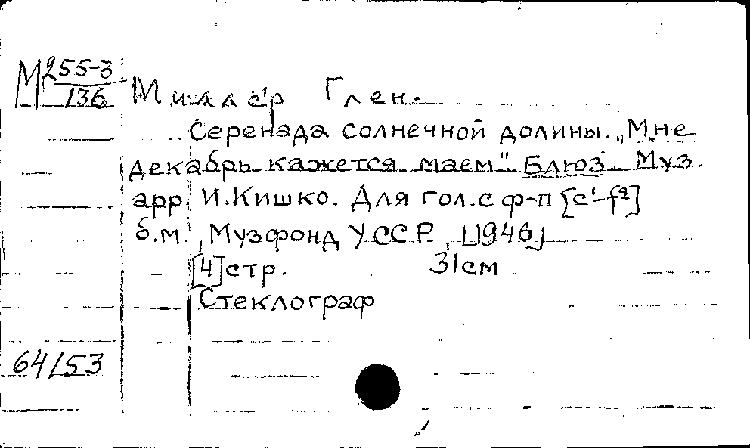 М255-3
136
Миллер Глен.
Серенада солнечной долины. „Мне
декабрь кажется маем". Блюз. Муз.
арр. И. Кишко. Для гол. с ф-п [c¹-f²]
б.м., Музфонд УССР, [1946]
[4] стр. 31 см
Стеклограф
64153